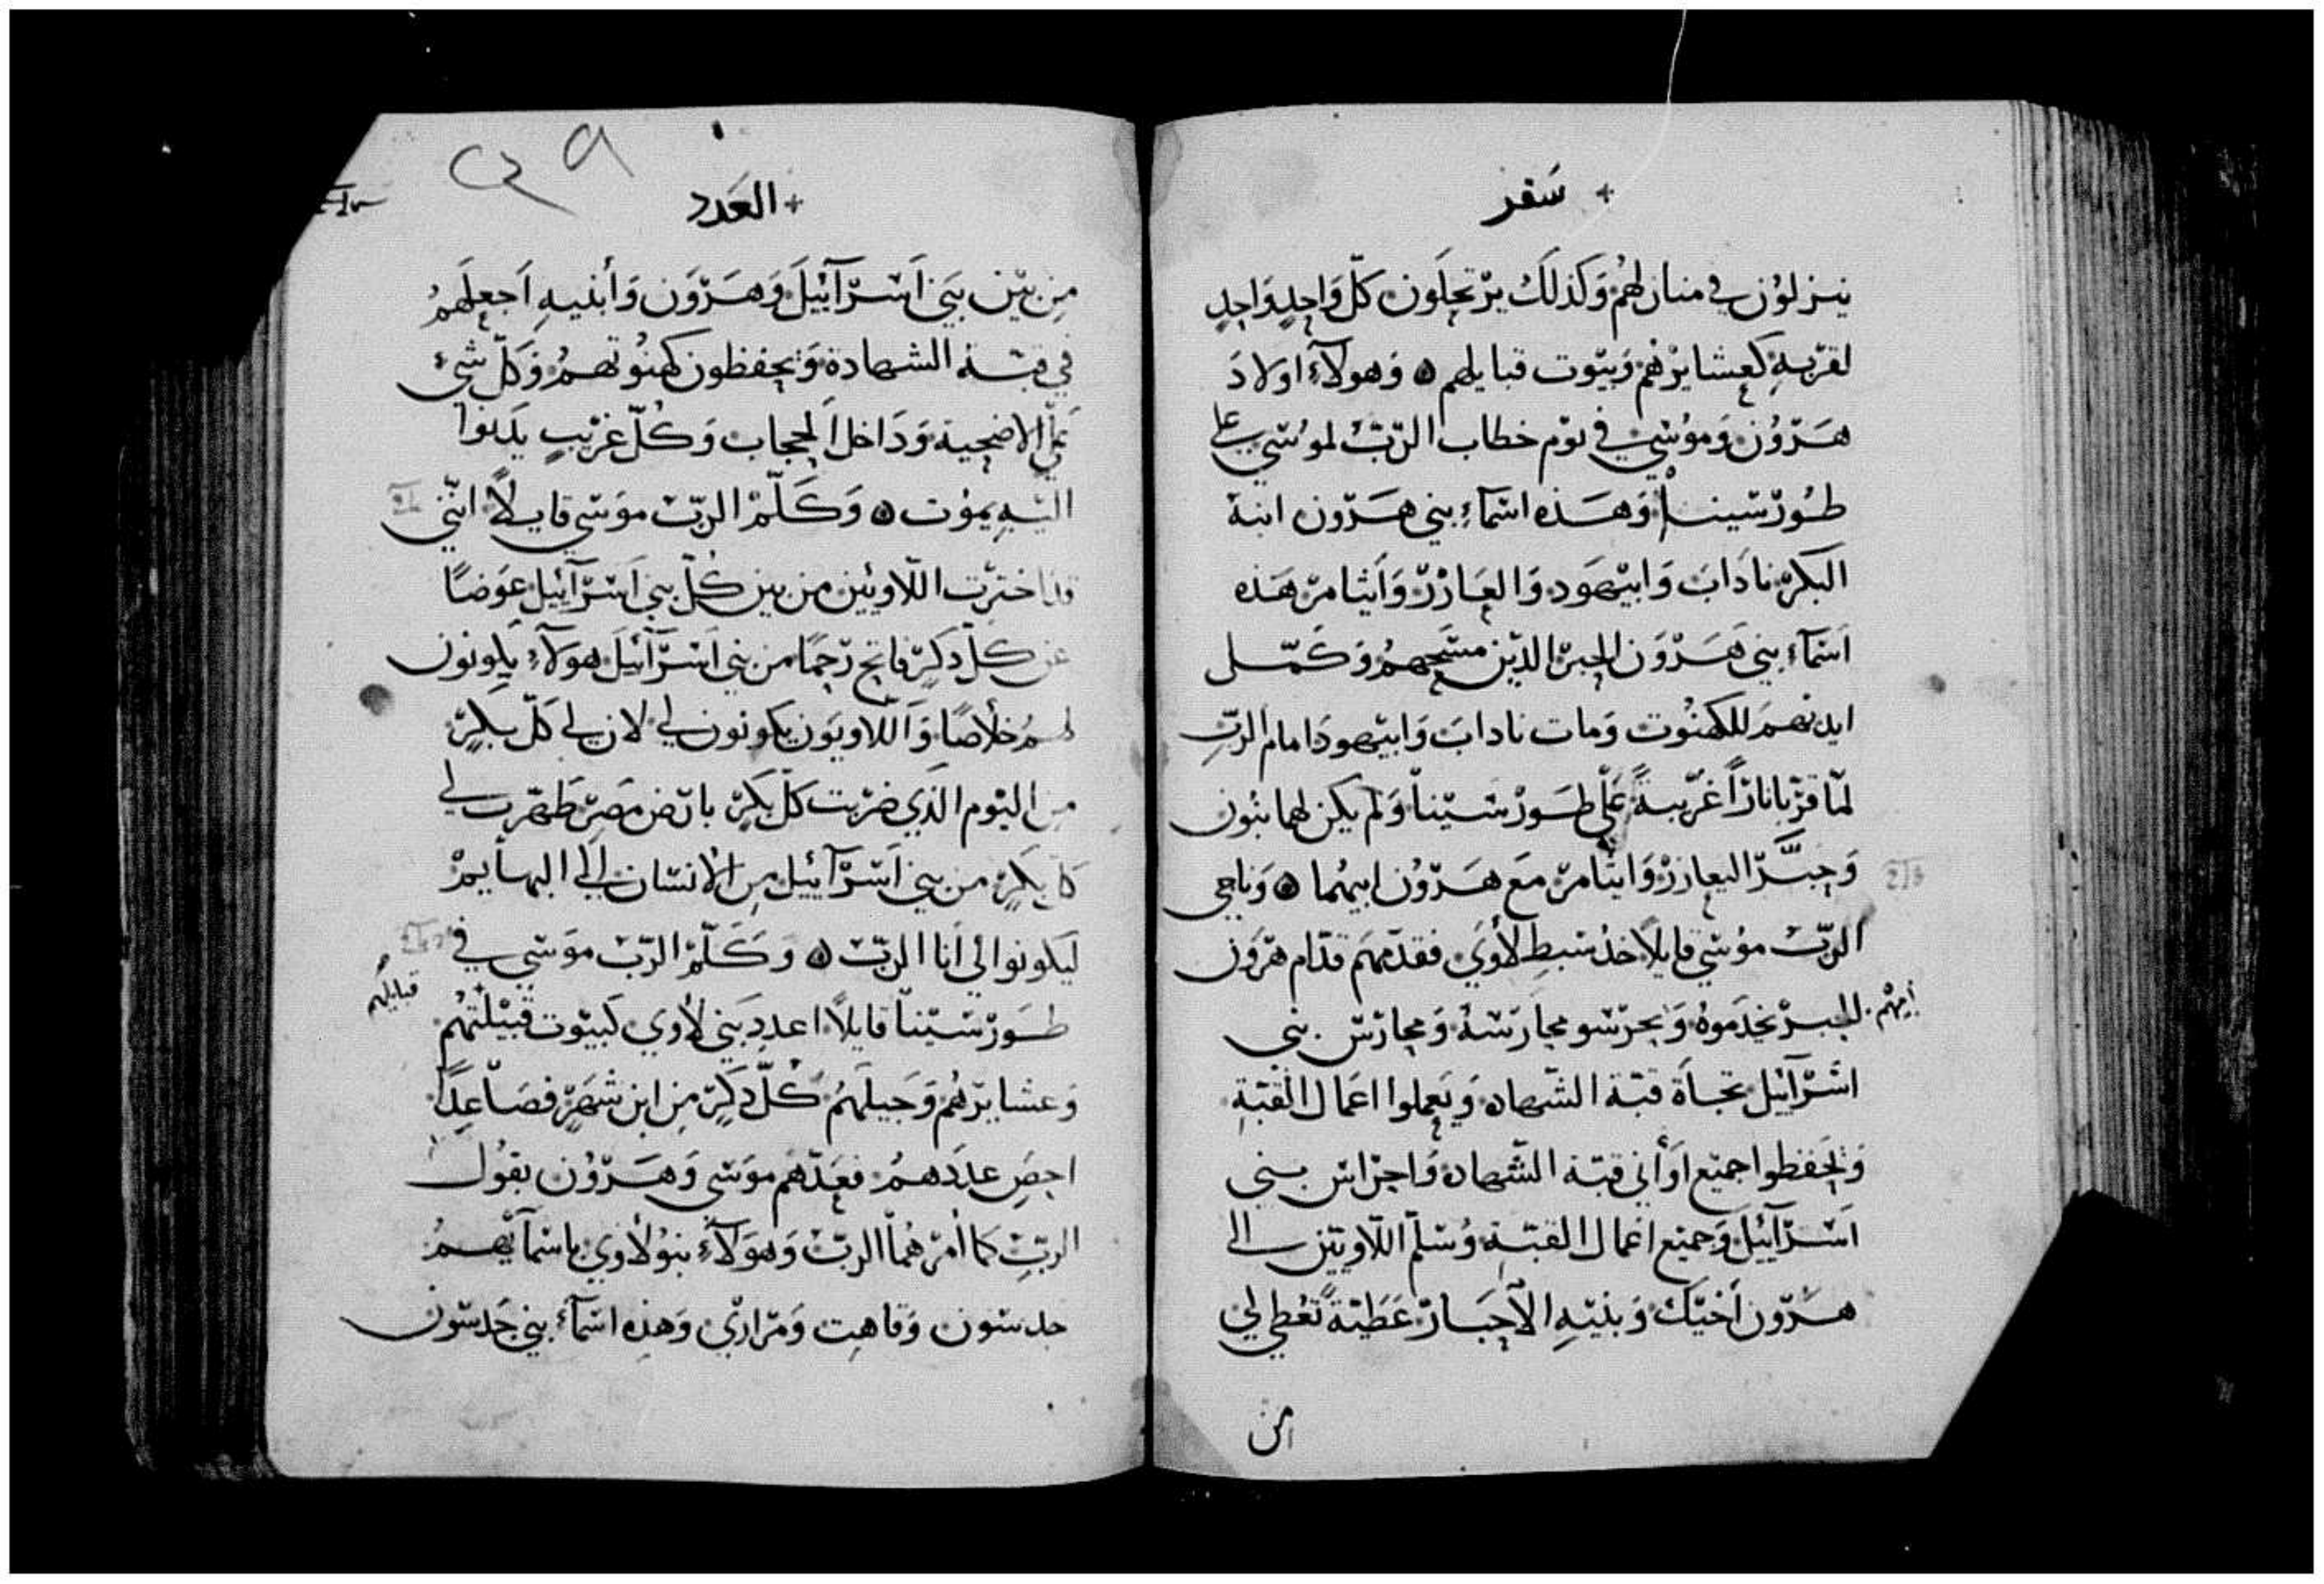 + سفر
ينزلون في منازلهم وكذلك يرتحلون كل واحد واحد
لقربه كعشايرهم وبيوت قبايلهم ⊙ وهولآء اولاد
هرون وموسي في يوم خطاب الرب لموسي علي
طور سينا وهذه اسمآء بني هرون ابنه
البكر ناداب وابيهود والعازر وايثامر هذه
اسمآء بني هرون الحبر الذين مسحهم وكمل
ايديهم للكهنوت ومات ناداب وابيهود امام الرب
لما قربا نارًا غريبةً علي طور سينا ولم يكن لهما بنون
وحبّر اليعازر وايثامر مع هرون ابيهما ⊙ وناجي
الرب موسي قايلًا خذ سبط لاوي فقدمهم قدام هرون
الحبر يخدموه ويحرسو محارسه ومحارس بني
اسرآئيل تجاة قبة الشهاده ويعملوا اعمال القبة
ويحفظوا جميع اوأني قبة الشهاده واحراس بني
اسرآئيل وجميع اعمال القبة وسلم اللاويين الي
هرون أخيك وبنيه الأحبار عطيةً تعطي لي
من
+ العدد
من بين بني اسرآئيل وهرون وأبنيه اجعلهم
في قبة الشهادة ويحفظون كهنوتهم وكل شيء
علي الاضحية وداخل الحجاب وكل غريب يدنوا
اليه يموت ⊙ وكلم الرب موسي قايلًا انني
قد اخترت اللاويين من بين كل بني اسرآئيل عوضًا
عن كل ذكر فاتح رحمًا من بني اسرآئيل هولآء يكونون
لهم خلاصًا واللاويون يكونون لي لان لي كل بكر
من اليوم الذي ضربت كل بكر بارض مصر طهرت لي
كل بكر من بني اسرآئيل من الانسان الي البهايم
ليكونوا لي أنا الرب ⊙ وكلم الرب موسي في
طور سينا قايلًا اعدد بني لأوي كبيوت قبيلتهم
قبايلهم
وعشايرهم وجبلهم كل ذكر من ابن شهر فصاعدًا
احص عددهم فعدهم موسي وهرون بقول
الرب كما أمرهما الرب وهولآء بنو لأوي باسمآيهم
جدسون وقاهت ومراري وهذه اسمآء بني جدسون